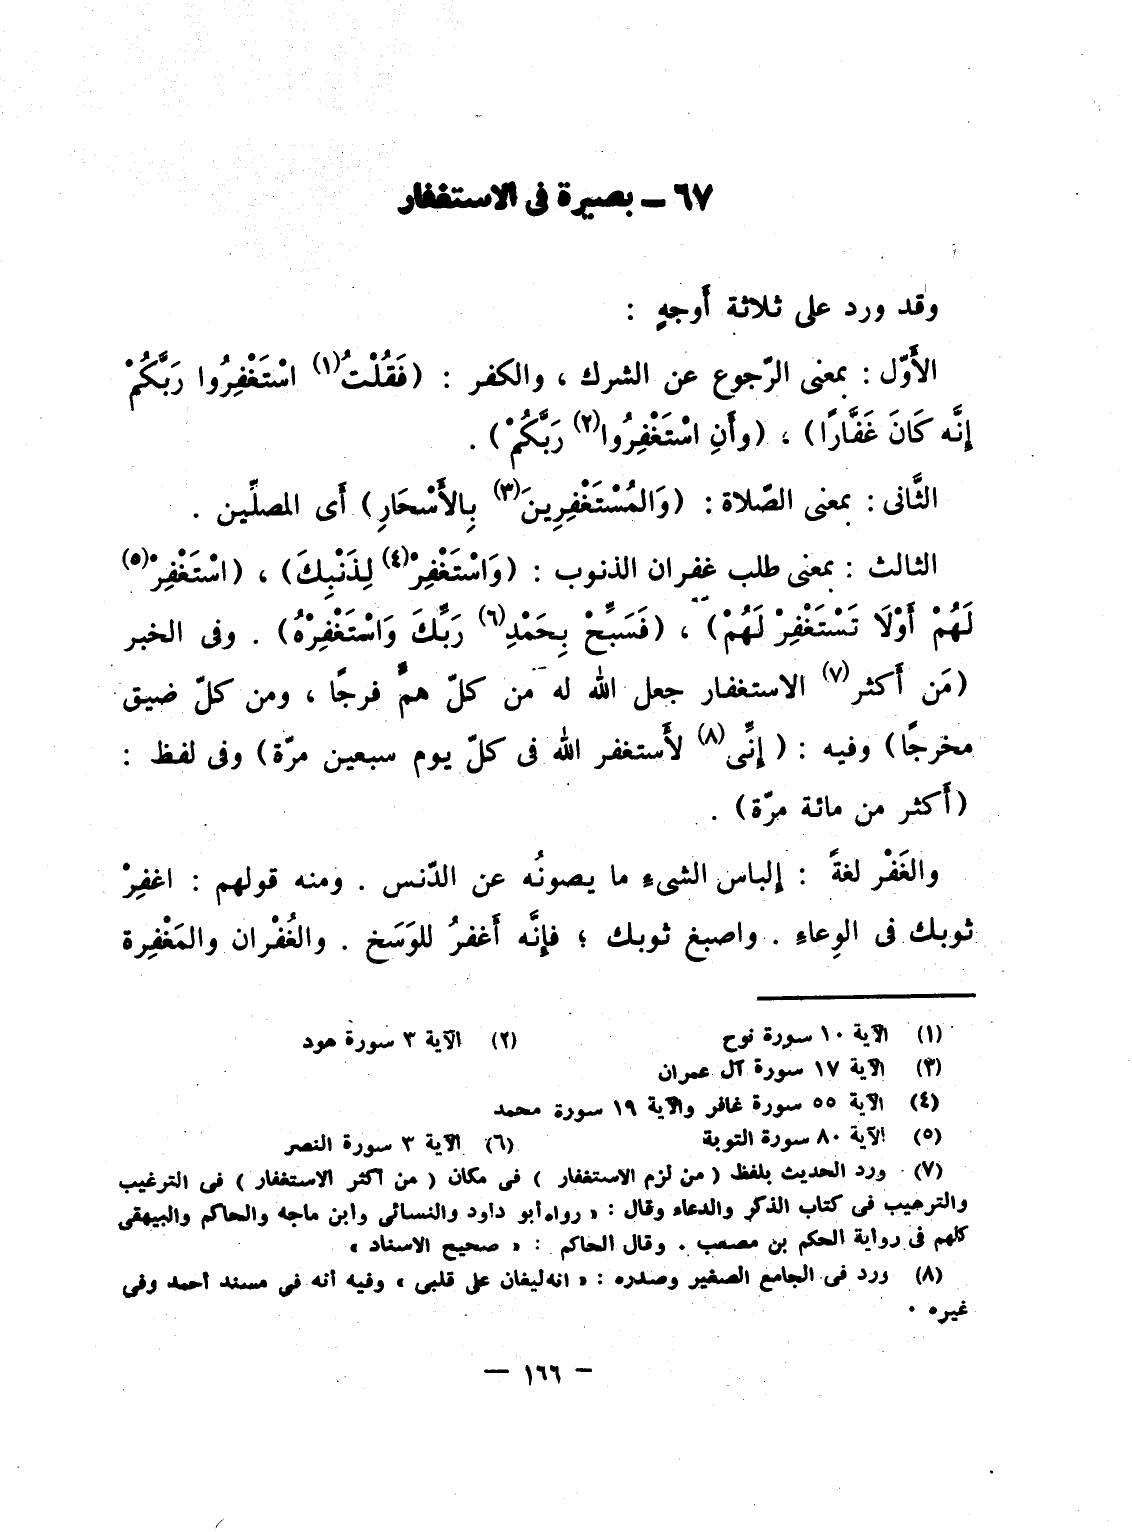 ٦٧ ــ بصيرة فى الاستغفار
وقد ورد على ثلاثة أَوجهٍ :
الأَوّل : بمعنى الرّجوع عن الشرك ، والكفر : (فَقُلْتُ(١) اسْتَغْفِرُوا رَبَّكُمْ
إِنَّه كَانَ غَفَّارًا) ، (وأَنِ اسْتَغْفِرُوا(٢) رَبَّكُمْ) .
الثَّانى : بمعنى الصّلاة : (وَالمُسْتَغْفِرِينَ(٣) بِالأَسْحَارِ) أَى المصلِّين .
الثالث : بمعنى طلب غفران الذنوب : (وَاسْتَغْفِرْ(٤) لِذَنْبِكَ) ، (اسْتَغْفِرْ(٥)
لَهُمْ أَوْلَا تَسْتَغْفِرْ لَهُمْ) ، (فَسَبِّحْ بِحَمْدِ(٦) رَبِّكَ وَاسْتَغْفِرْهُ) . وفى الخبر
(مَن أَكثر(٧) الاستغفار جعل الله له من كلّ همٍّ فرجًا ، ومن كلّ ضيق
مخرجًا) وفيه : (إِنِّى(٨) لأَستغفر الله فى كلّ يوم سبعين مرّة) وفى لفظ :
(أَكثر من مائة مرّة) .
والغَفْر لغةً : إِلباس الشىء ما يصونُه عن الدّنس . ومنه قولهم : اغفِرْ
ثوبك فى الوِعاءِ . واصبغ ثوبك ؛ فإِنَّه أَغفرُ للوَسَخ . والغُفْران والمَغْفِرة
(١) الآية ١٠ سورة نوح (٢) الآية ٣ سورة هود
(٣) الآية ١٧ سورة آل عمران
(٤) الآية ٥٥ سورة غافر والآية ١٩ سورة محمد
(٥) الآية ٨٠ سورة التوبة (٦) الآية ٣ سورة النصر
(٧) ورد الحديث بلفظ (من لزم الاستغفار) فى مكان (من أكثر الاستغفار) فى الترغيب
والترهيب فى كتاب الذكر والدعاء وقال : « رواه أبو داود والنسائى وابن ماجه والحاكم والبيهقى
كلهم فى رواية الحكم بن مصعب . وقال الحاكم : « صحيح الاسناد »
(٨) ورد فى الجامع الصغير وصدره : « انه ليغان على قلبى » وفيه أنه فى مسند أحمد وفى
غيره .
— ١٦٦ —